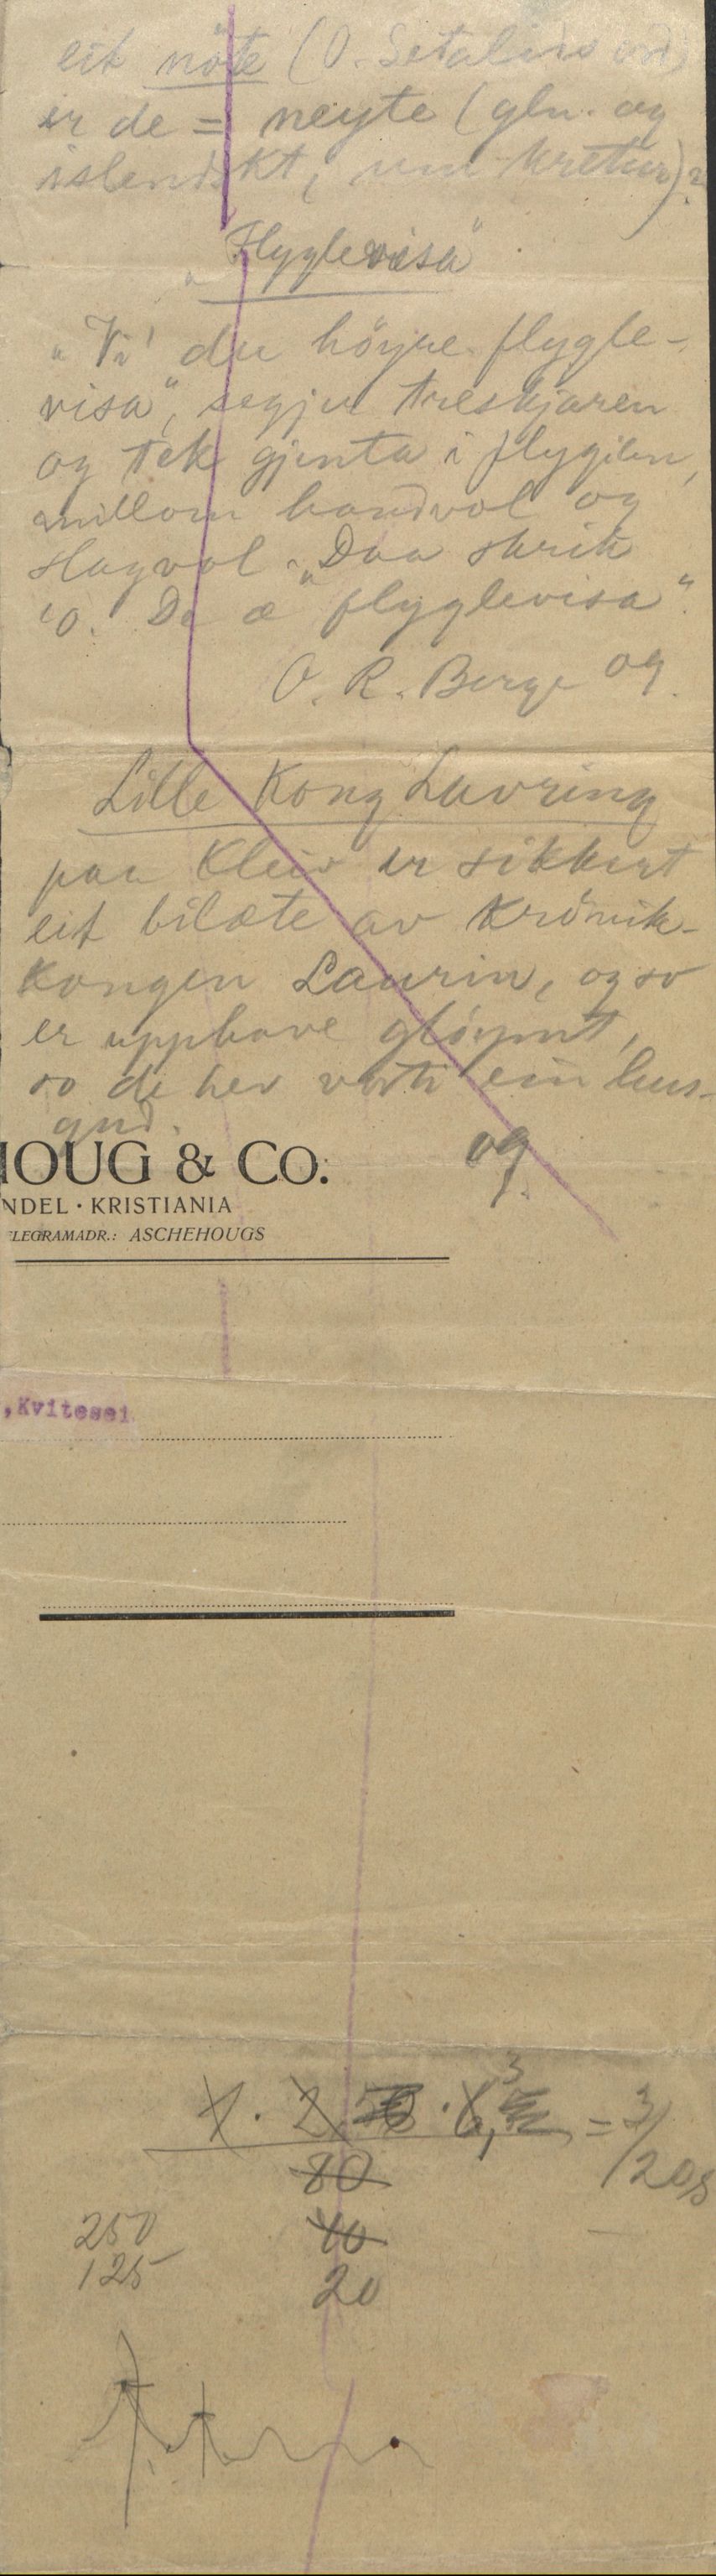 eit nöte (O. Setalids ord)
er de = neyte (gln. og
islendskt, um kretur)?
"Flyglevisa"
"Vi' du höyre flygle-
visa", segjer treskjaren
og tek gjenta i flygilen,
millom handvol og
slagvol. "Daa skrik
o. De æ flyglevisa".
O. R. Berge og
Lille Kong Lavring
paa Kleiv er sikkert
eit bilæte av Krönik-
kongen Laurin, og so
er upphave glöymt,
so de hev vorti ein hus-
gud.
og.
HOUG & CO.
NDEL · KRISTIANIA
LEGRAMADR.: ASCHEHOUGS
,Kvitesei
3
1 · 2 · 6, = 3/20
80
250 40
125 20